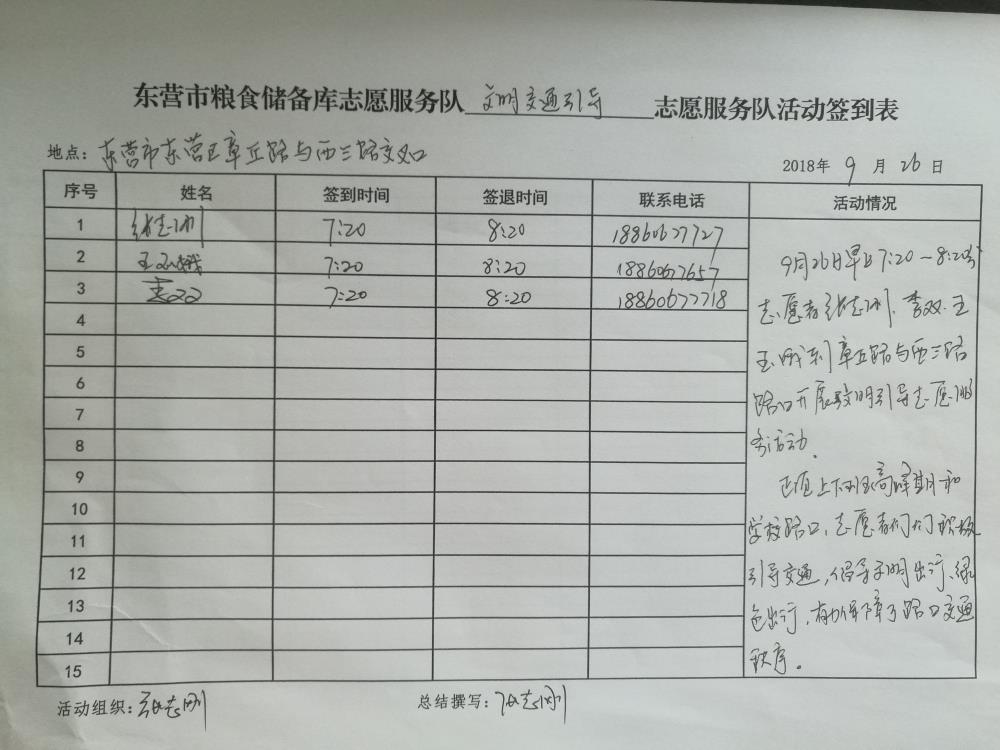 东营市粮食储备库志愿服务队 文明交通引导 志愿服务队活动签到表
地点：东营市东营区章丘路与西三路交叉口
2018年 9 月 26 日
序号 姓名 签到时间 签退时间 联系电话 活动情况
1 张志刚 7:20 8:20 18860677727
2 王玉娥 7:20 8:20 18860677657
3 李双双 7:20 8:20 18860677718
4
5
6
7
8
9
10
11
12
13
14
15
9月26日早上7:20-8:20分
志愿者张志刚、李双、王
玉娥来到章丘路与西三路
路口开展文明引导志愿服
务活动。
正值上下班高峰期和
学校路口，志愿者们积极
引导交通，倡导文明出行、绿
色出行，有力保障了路口交通
秩序。
活动组织：张志刚
总结撰写：张志刚